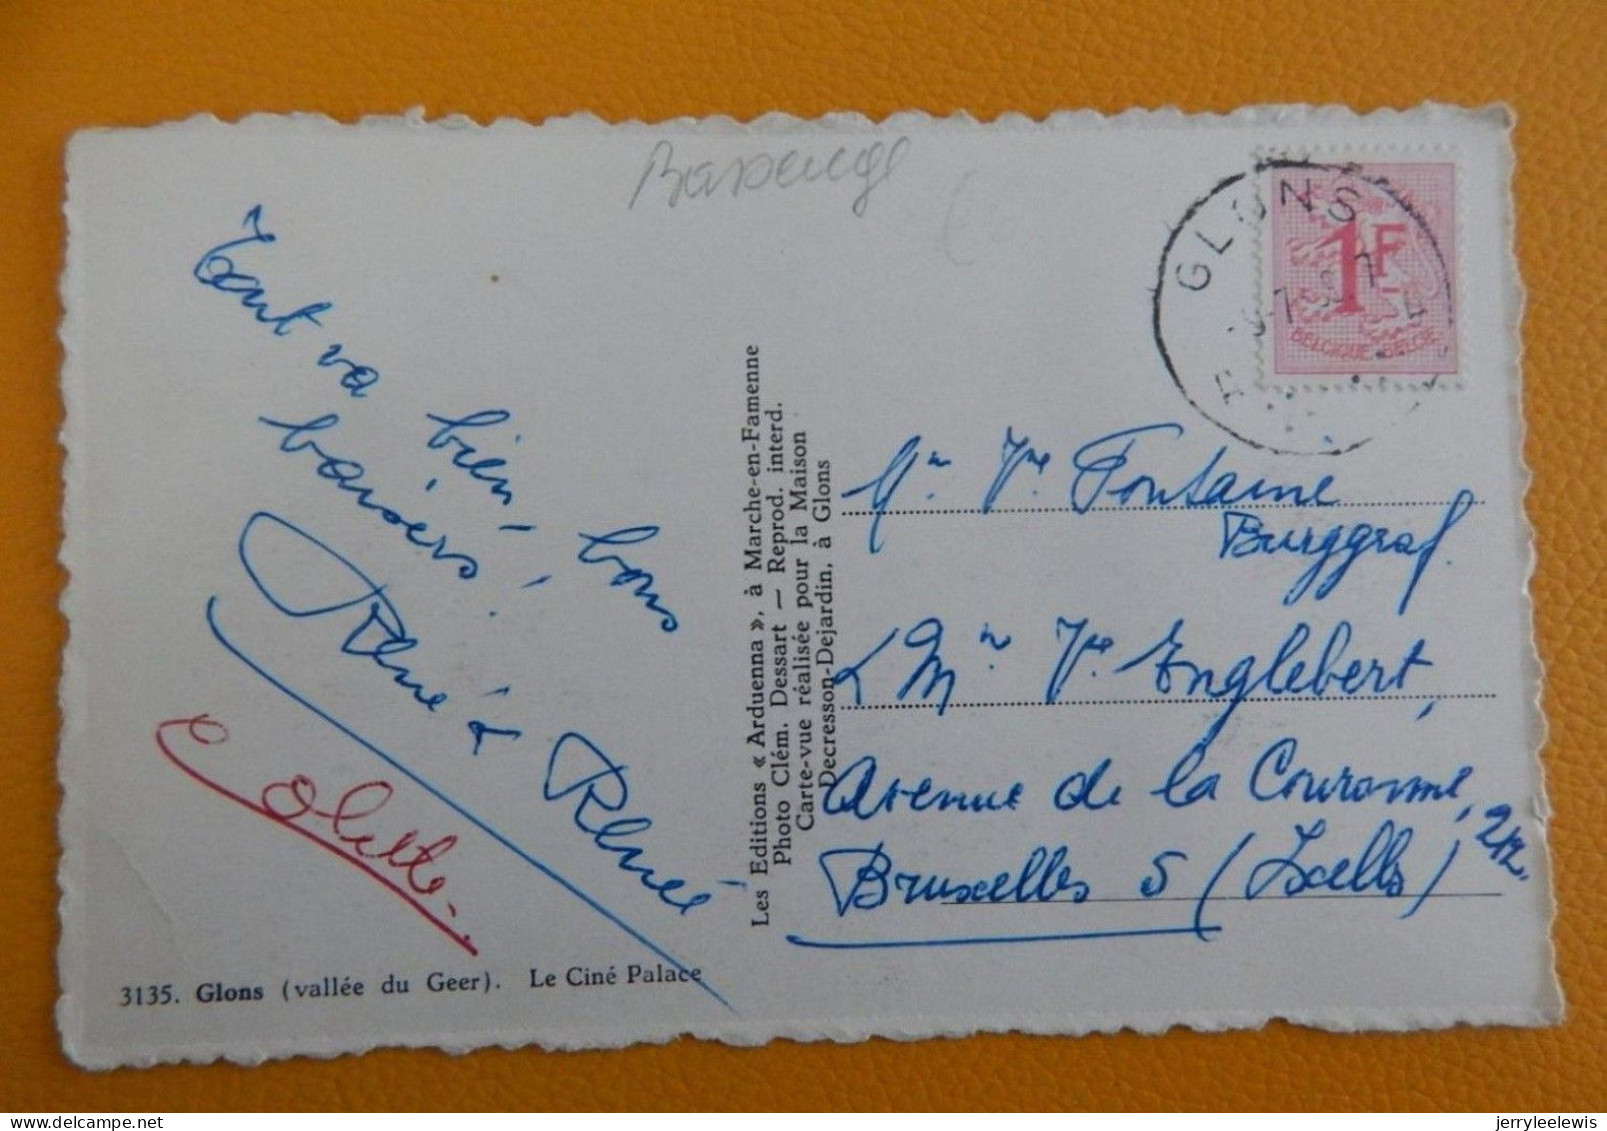 Bassenge
Tout va bien, bons
baisers!
René & Renée
Colette.
3135. Glons (vallée du Geer). Le Ciné Palace
Les Editions « Arduenna », à Marche-en-Famenne
Photo Clém. Dessart — Reprod. interd.
Carte-vue réalisée pour la Maison
Decresson-Dejardin, à Glons
GLONS
1F
BELGIQUE-BELGIE
Mme Vve Fontaine
Burggraf.
& Mme Vve Englebert,
Avenue de la Couronne, 212.
Bruxelles 5 (Ixelles)
delcampe.net
jerryleelewis